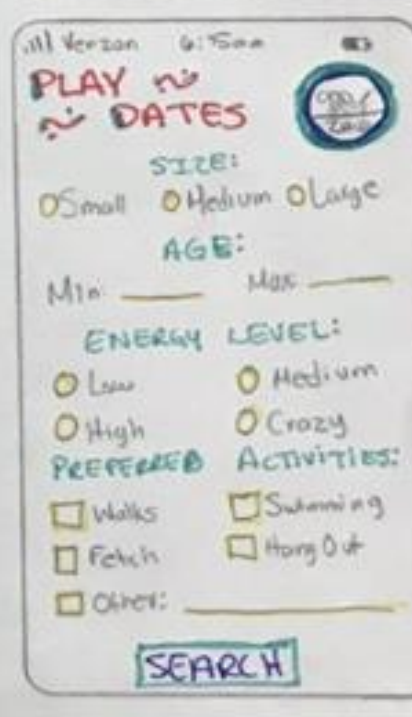 Verizon
PLAY
DATES
SIZE:
Small Medium Large
AGE:
Min Max
ENERGY LEVEL:
Low Medium
High Crazy
PREFERRED ACTIVITIES:
Walks Swimming
Fetch Hang Out
Other:
SEARCH